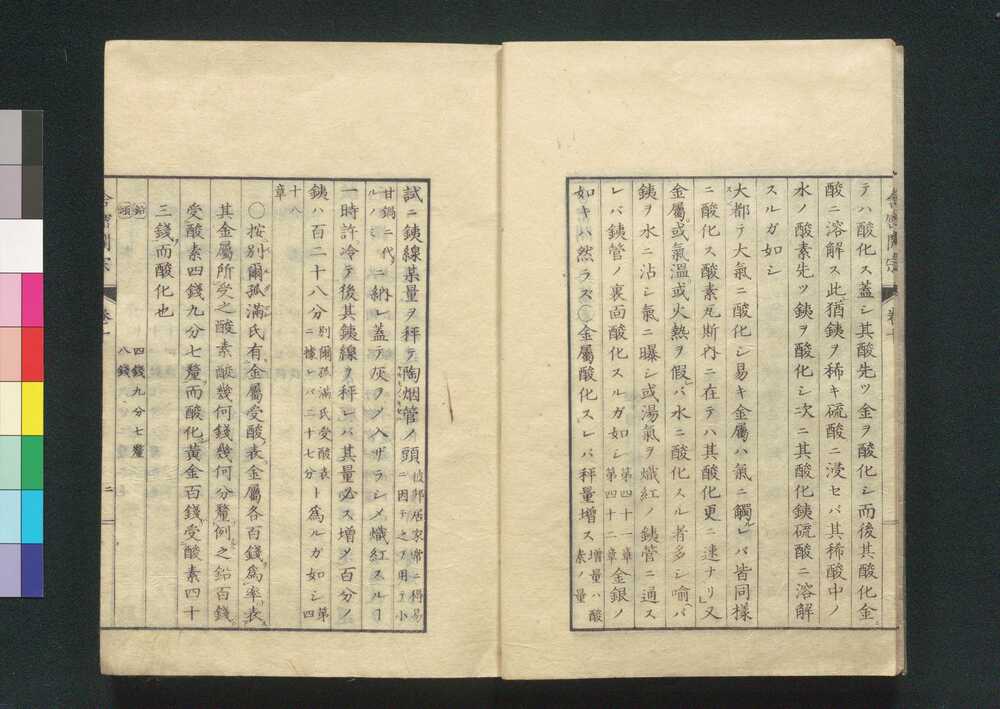 テハ酸化ス蓋シ其酸先ツ金ヲ酸化シ而後其酸化金
酸ニ溶解ス此猶銕ヲ稀キ硫酸ニ浸セバ其稀酸中ノ
水ノ酸素先ツ銕ヲ酸化シ次ニ其酸化銕硫酸ニ溶解
スルガ如シ
大都テ大氣ニ酸化シ易キ金屬ハ氣ニ觸レバ皆同樣
ニ酸化ス酸素瓦斯內ニ在テハ其酸化更ニ速ナリ又
金屬或氣溫或火熱ヲ假レバ水ニ酸化スル者多シ喻ヘバ
銕ヲ水ニ沾シ氣ニ曝シ或湯氣ヲ熾紅ノ銕管ニ通ス
レバ銕管ノ裏面酸化スルガ如シ第四十一章第四十二章金銀ノ
如キハ然ラズ○金屬酸化スレバ秤量增ス增量ハ酸素ノ量
試ニ銕線某量ヲ秤テ陶烟管ノ頭彼邦居家常ニ得易シ因テ之ヲ用テ小
甘鍋ニ代ルノミニ納レ蓋テ灰ヲノ入ザラシメ熾紅スルヿ
一時許冷テ後其銕線ヲ秤レバ其量必ス增メ百分ノ
銕ハ百二十八分別爾孤滿氏受酸表ニ據レバ二十七分ト爲ルガ如シ第四
十八章
○按別爾孤滿氏有金屬受酸表金屬各百錢爲率表
其金屬所受之酸素酸幾何錢幾何分釐例之鉛百錢
受酸素四錢九分七釐而酸化黃金百錢受酸素四十
三錢而酸化也
鉛 四錢九分七釐
八錢
卷一
二